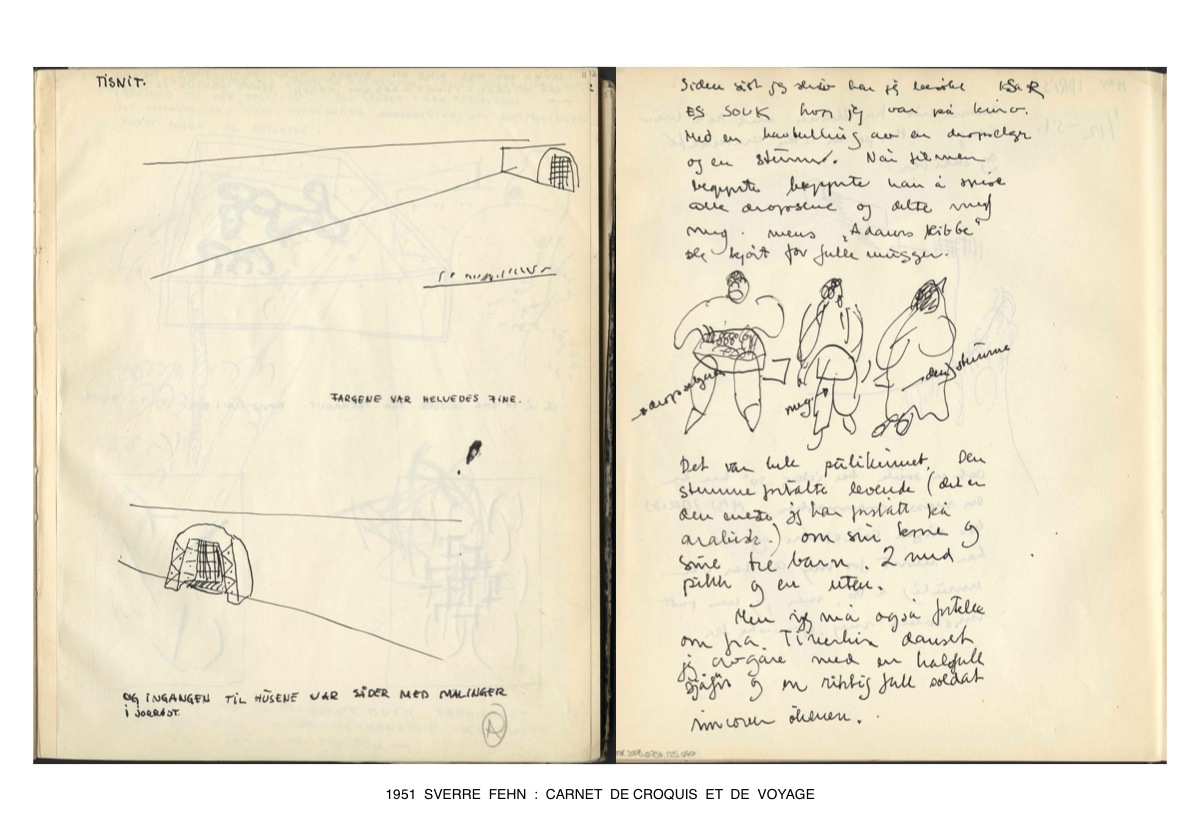 TISNIT.
FARGENE VAR HELVEDES FINE.
OG INGANGEN TIL HÜSENE VAR SIDER MED MALINGER
I JORRØDT.
A
Siden sist jeg skrev har jeg besøkt KSAR
ES SOUK hvor jeg var på kino.
Med en av en dropselger
og en stümme. Når filmen
begynte begynte han å spise
alle dropsene og delte med
meg. mens "Adams Ribbe"
ble kjørt for fulle mugger.
dropselgeren
meg
den stümme
Det var hele publikummet. Den
stumme fortalte levende (det er
den eneste jeg har forstått på
arabisk.) om sin kone og
sine tre barn. 2 med
pikk og en uten.
Men jeg må også fortelle
om fra danset
jeg avgåre med en halvfull
sjåfør og en riktig full soldat
økenen.
1951 SVERRE FEHN : CARNET DE CROQUIS ET DE VOYAGE